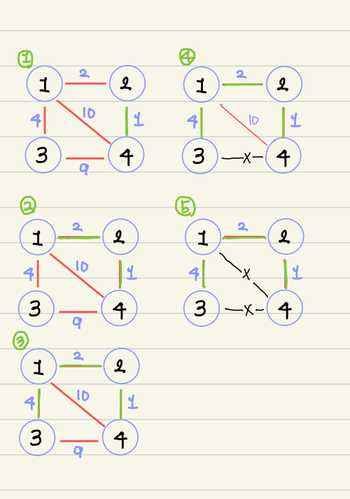 ①
1 2 2
4 10 1
3 9 4
②
1 2 2
4 10 1
3 9 4
③
1 2 2
4 10 1
3 9 4
④
1 2 2
4 10 1
3 x 4
⑤
1 2 2
4 x 1
3 x 4